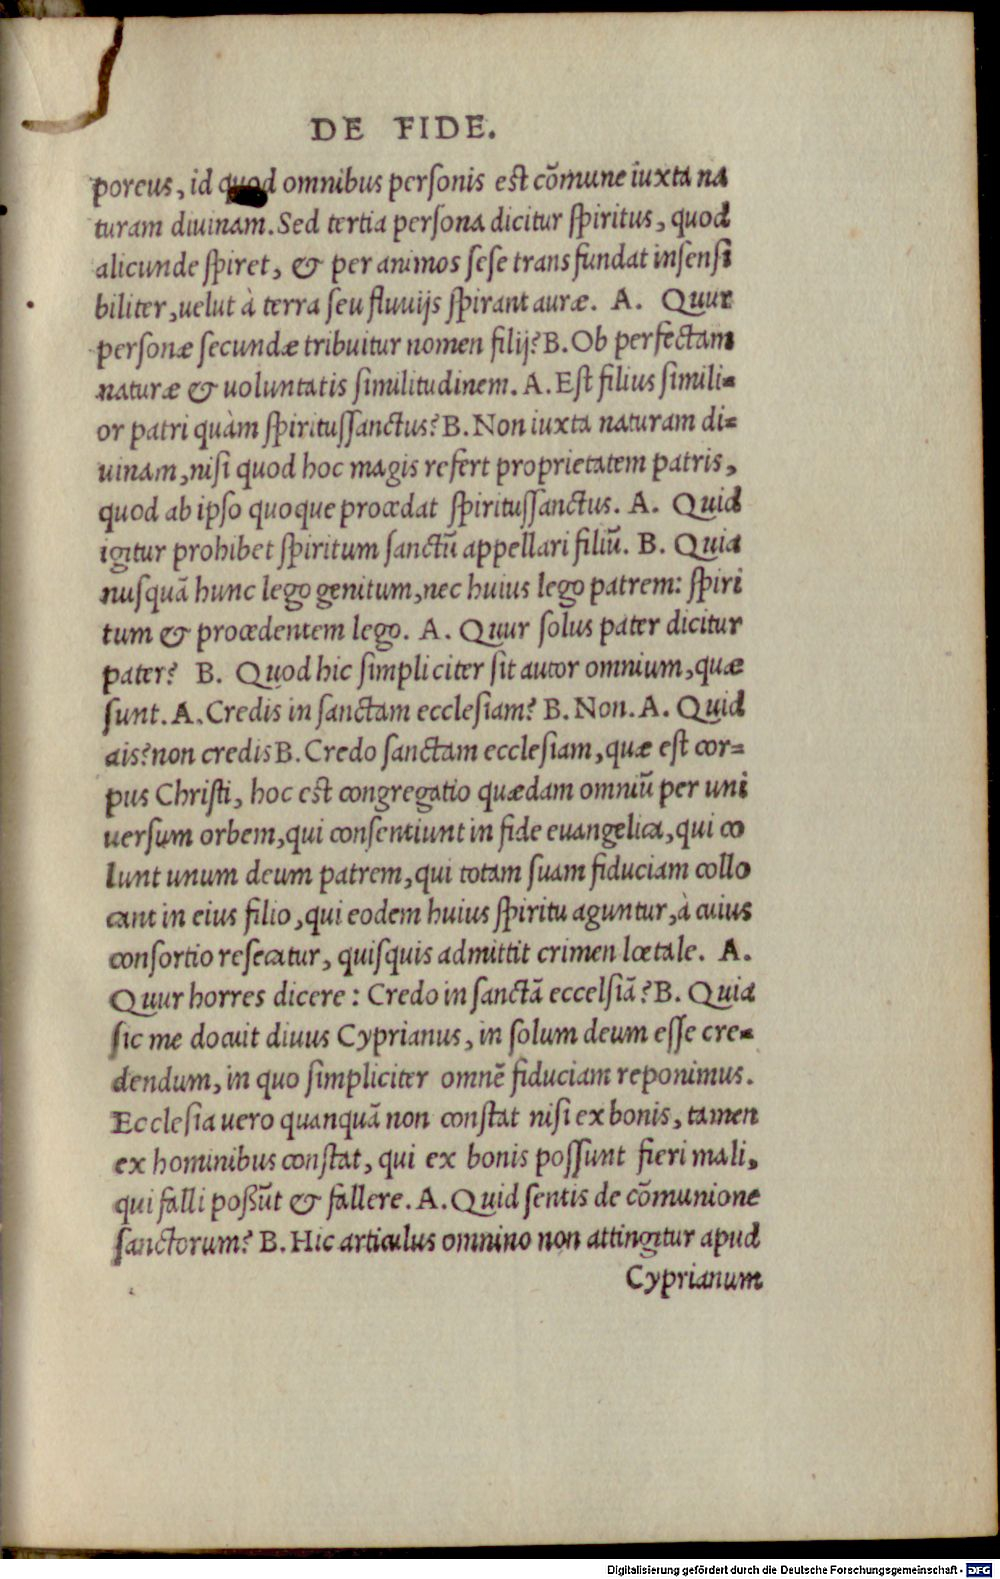 DE FIDE.
poreus, id quod omnibus personis est cõmune iuxta na
turam diuinam. Sed tertia persona dicitur spiritus, quod
alicunde spiret, & per animos sese transfundat insensi
biliter, uelut à terra seu fluuijs spirant auræ. A. Quur
personæ secundæ tribuitur nomen filij? B. Ob perfectam
naturæ & uoluntatis similitudinem. A. Est filius simili=
or patri quàm spiritussanctus? B. Non iuxta naturam di=
uinam, nisi quod hoc magis refert proprietatem patris,
quod ab ipso quoque procedat spiritussanctus. A. Quid
igitur prohibet spiritum sanctũ appellari filiũ. B. Quia
nusquã hunc lego genitum, nec huius lego patrem: spiri
tum & procedentem lego. A. Quur solus pater dicitur
pater? B. Quod hic simpliciter sit autor omnium, quæ
sunt. A. Credis in sanctam ecclesiam? B. Non. A. Quid
ais? non credis B. Credo sanctam ecclesiam, quæ est cor=
pus Christi, hoc est congregatio quædam omniũ per uni
uersum orbem, qui consentiunt in fide euangelica, qui co
lunt unum deum patrem, qui totam suam fiduciam collo
cant in eius filio, qui eodem huius spiritu aguntur, à cuius
consortio resecatur, quisquis admittit crimen lœtale. A.
Quur horres dicere: Credo in sanctã eccelsiã? B. Quia
sic me docuit diuus Cyprianus, in solum deum esse cre=
dendum, in quo simpliciter omnẽ fiduciam reponimus.
Ecclesia uero quanquã non constat nisi ex bonis, tamen
ex hominibus constat, qui ex bonis possunt fieri mali,
qui falli poßũt & fallere. A. Quid sentis de cõmunione
sanctorum? B. Hic articulus omnino non attingitur apud
Cyprianum
Digitalisierung gefördert durch die Deutsche Forschungsgemeinschaft - DFG